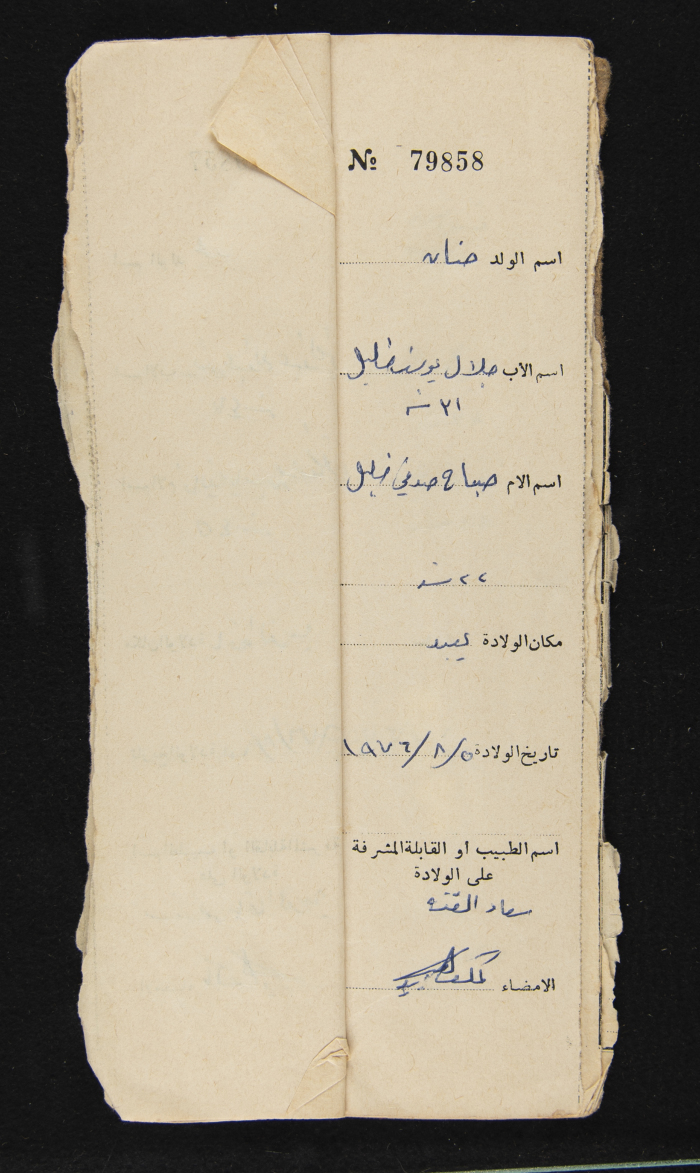 № 79858
اسم الولد حنان
اسم الأب جلال يوسف خليل
٣١ سنة
اسم الام صباح صدقي خليل
٢٢ سنة
مكان الولادة يعبد
تاريخ الولادة ٥/٨/١٩٧٦
اسم الطبيب أو القابلة المشرفة
على الولادة
سعاد
الامضاء